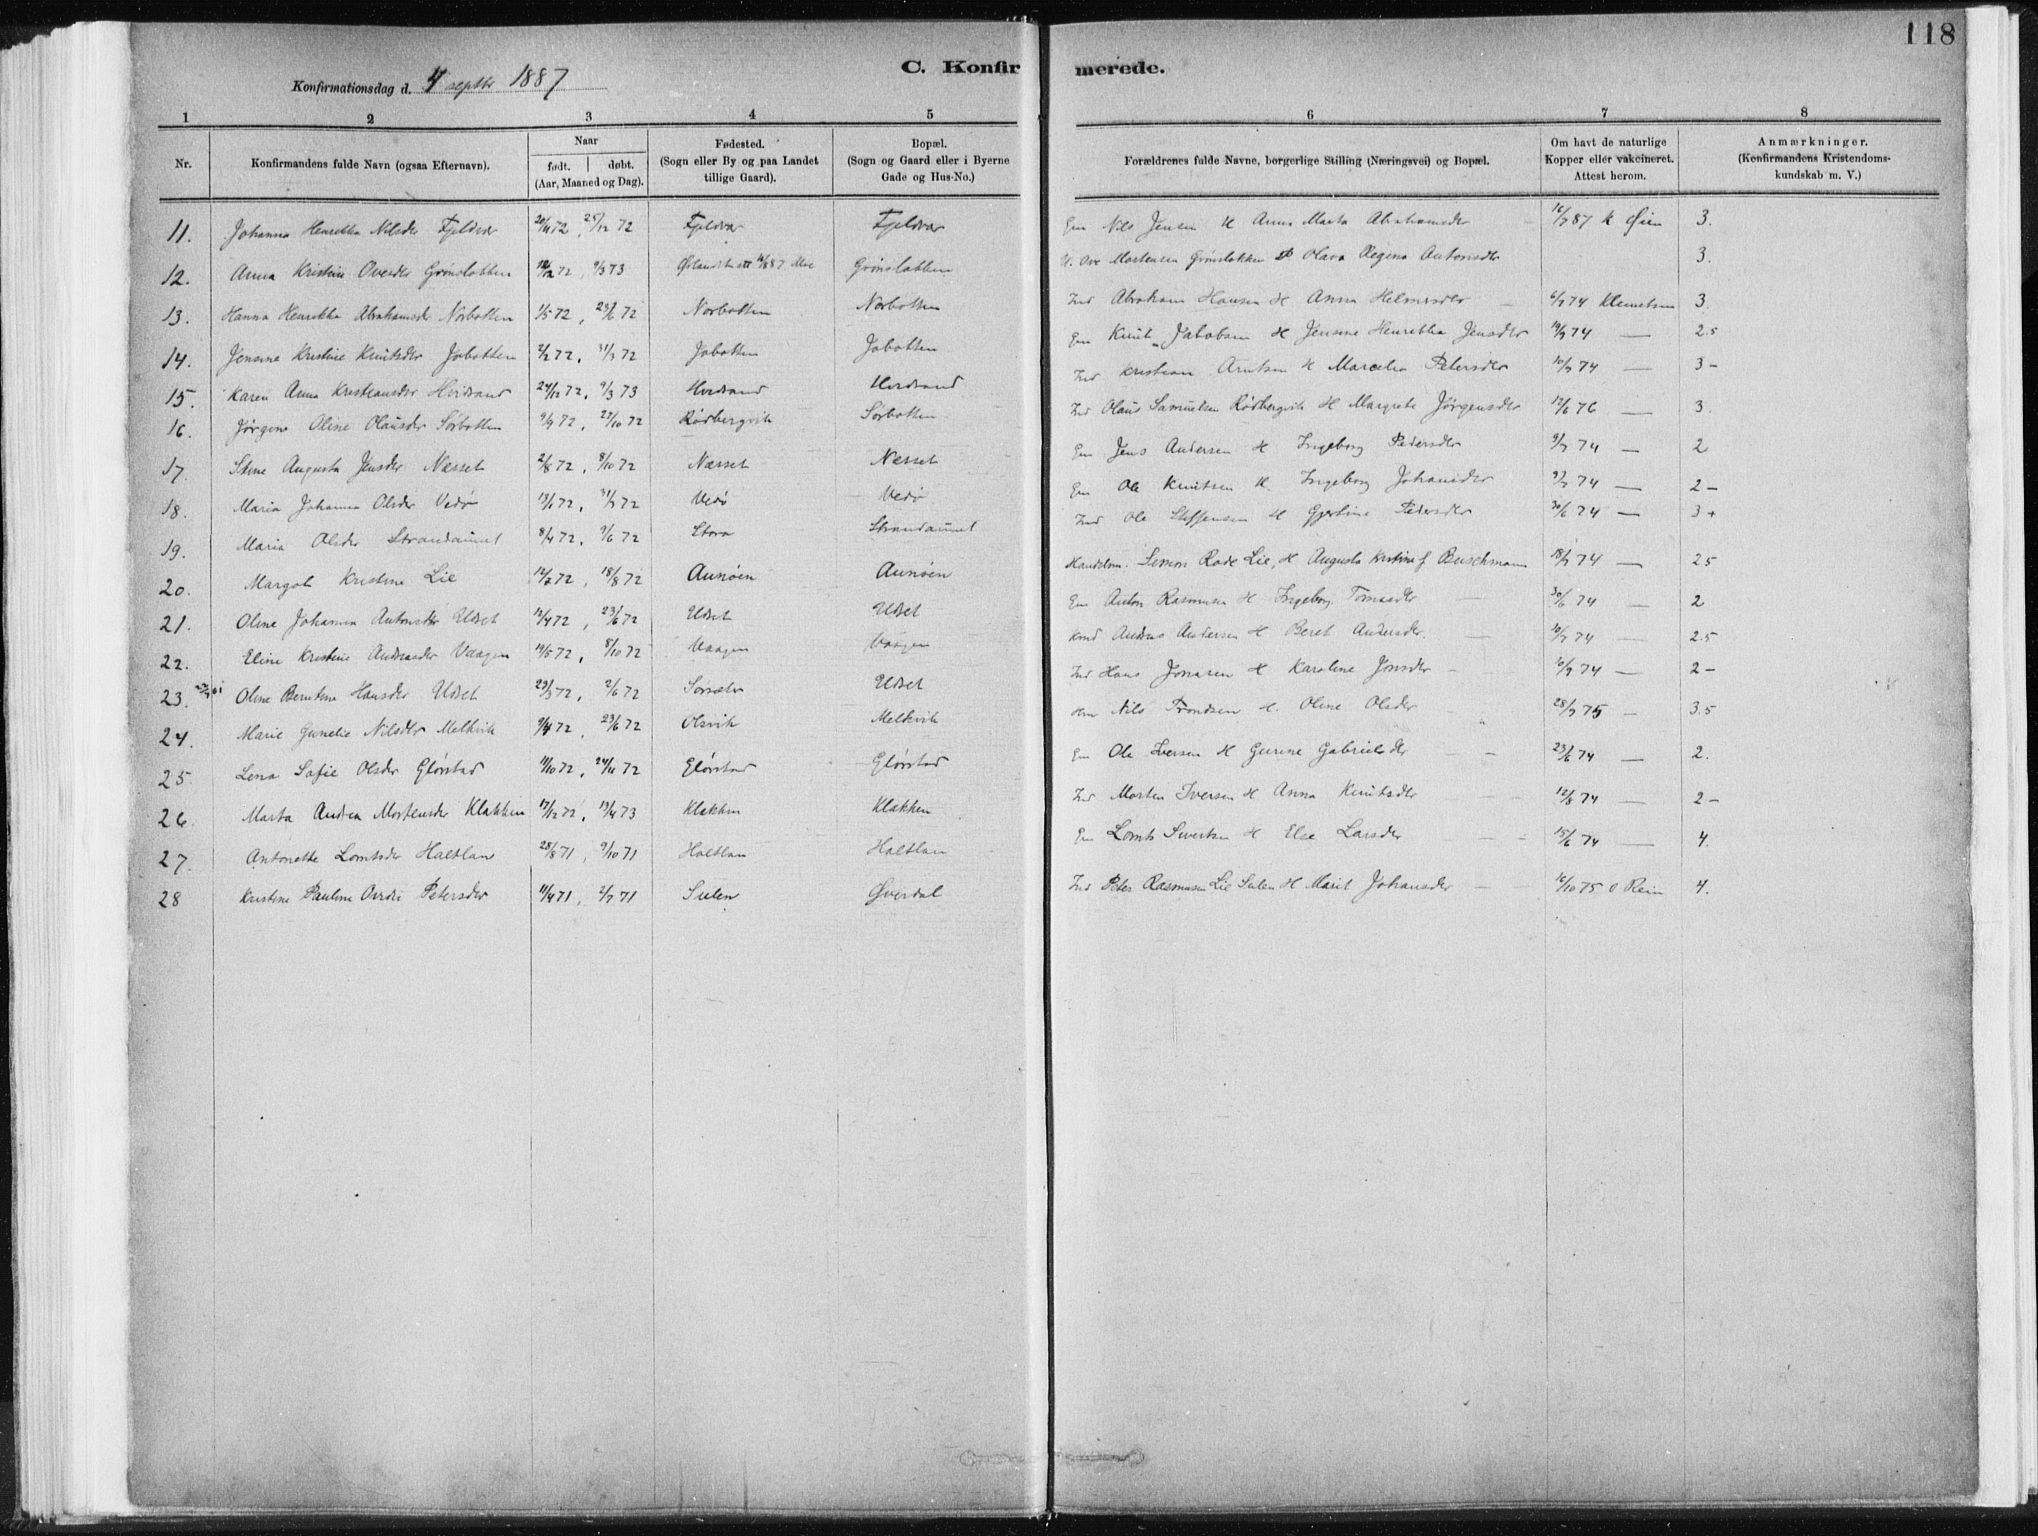 118
C. Konfirmerede.
Konfirmationsdag d. 4 septbr 1887
1 2 3 4 5 6 7 8
Nr. Konfirmandens fulde Navn (ogsaa Efternavn). Naar født. døbt. (Aar, Maaned og Dag). Fødested. (Sogn eller By og paa Landet tillige Gaard). Bopæl. (Sogn og Gaard eller i Byerne Gade og Hus-No.) Forældrenes fulde Navne, borgerlige Stilling (Næringsvei) og Bopæl. Om havt de naturlige Kopper eller vakcineret. Attest herom. Anmærkninger. (Konfirmandens Kristendomskundskab m. V.)
11. Johanna Henrikka Nilsdr Fjeldvær 20/11 72, 25/12 72 Fjeldvær Fjeldvær Em Nils Jensen H Anna Marta Abrahamsdr 16/7 87 K Øien 3.
12. Anna Kristine Ovesdr Grønslotten 72, 9/3 73 Grønslotten Ove Mortensen Grønslokken Olava Regina Antonsdr 3.
13. Hanna Henrikka Abrahamsdr Norbotten 1/5 72, 23/6 72 Norbotten Norbotten Ind Abraham Hansen H Anna Helmersdr 6/7 74 Klemetsen 3.
14. Jensine Kristine Knutsdr Jøbotten 2/2 72, 31/3 72 Jøbotten Jøbotten Em Knut Jakobsen H Jensine Henrikka Jensdr 19/9 74 — 2.5
15. Karen Anna Kristiansdr Hvidsand 24/12 72, 9/3 73 Hvidsand Hvidsand Ind Kristian Arntsen H Marcelia Petersdr 10/7 74 — 3-
16. Jørgine Oline Olausdr Sørbotten 9/9 72, 27/10 72 Rødbergvik Sørbotten Ind Olaus Samuelsen Rødbergvik H Margrete Jørgensdr 12/6 76 — 3.
17. Stine Augusta Jensdr Næsset 2/8 72, 8/10 72 Næsset Næsset Em Jens Andersen H Ingeborg Pedersdr 9/7 74 — 2
18. Maria Johanna Olsdr Vedø 13/1 72, 31/7 72 Vedø Vedø Em Ole Knutsen H. Ingeborg Johansdr 9/7 74 — 2-
19. Maria Olsdr Strandaunet 8/4 72, 9/6 72 Storø Strandaunet Ind Ole Steffensen H Gjertine Pedersdr 30/6 74 — 3+
20. Margot Kristine Lie 12/7 72, 18/8 72 Aunøen Aunøen Handelsm. Simon Rode Lie, H Augusta Kristine f Buschmann 18/7 74 — 2.5
21. Oline Johanna Antonsdr Udset 12/4 72, 23/6 72 Udset Udset Em Anton Rasmusen H Ingeborg Tomasdr 30/6 74 — 2
22. Eline Kristine Andreasdr Vaagen 19/5 72, 8/10 72 Vaagen Vaagen Andreas Andersen H Beret Andersdr 10/7 74 — 2.5
23. Oline Berntine Hansdr Udset 23/3 72, 2/6 72 Sørsæter Udset Ind Hans Jonasen H Karoline Jonsdr 10/9 74 — 2-
24. Marie Gunelie Nilsdr Melkvik 9/4 72, 23/6 72 Olsvik Melkvik Nils Trondsen H. Oline Olsdr 28/7 75 — 3.5
25 Lena Sofie Olsdr Glørstad 11/10 72, 24/11 72 Glørstad Glørstad Em Ole Iversen H Gurine Gabrielsdr 23/6 74 — 2.
26. Marta Andrea Mortensdr Klakken 17/12 72, 13/4 73 Klakken Klakken Ind Morten Iversen H Anna Knutsdr 12/8 74 — 2-
27. Antonette Lomtsdr Haltlan 28/8 71, 9/10 71 Haltlan Haltlan Em Lomts Sivertsen H Else Larsdr 15/6 74 — 4.
28 Kristine Pauline Petersdr 11/4 71, 2/7 71 Sulen Øverdal Ind Peter Rasmusen Lie Sulen H Marit Johansdr 16/10 75 O Rein 4.